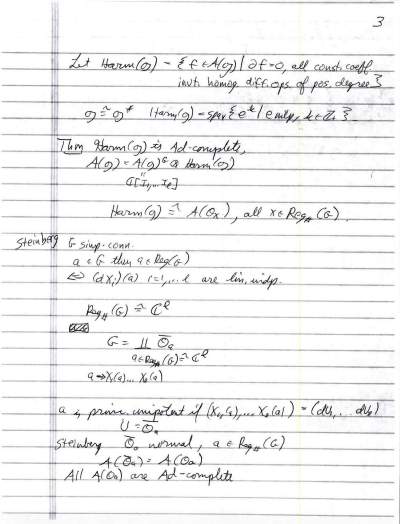 3
Let Harm(g) = { f ∈ A(g) | ∂f = 0, all const. coeff
invt. homog diff. ops. of pos. degree }
g ≅ g* Harm(g) = span { e^k | e nilp, k ∈ Z₊ }
Thm Harm(g) is Ad-complete,
A(g) = A(g)^G ⊗ Harm(g)
"
C[I₁,... I_ℓ]
Harm(g) ≅ A(O_x), all x ∈ Reg (G).
Steinberg G simp. conn.
a ∈ G then a ∈ Reg(G)
⇔ (dX_i)(a) i=1,... ℓ are lin. indp.
Reg (G) ≅ C^ℓ
G = ∐ Ō_a
a ∈ Reg (G) ≅ C^ℓ
a → X₁(a)... X_ℓ(a)
a is princ. unipotent if (X₁(a),... X_ℓ(a)) = (dU₁,.. dU_ℓ)
U = Ō_a
Steinberg Ō_a normal, a ∈ Reg (G)
A(Ō_a) = A(O_a)
All A(O_a) are Ad-complete